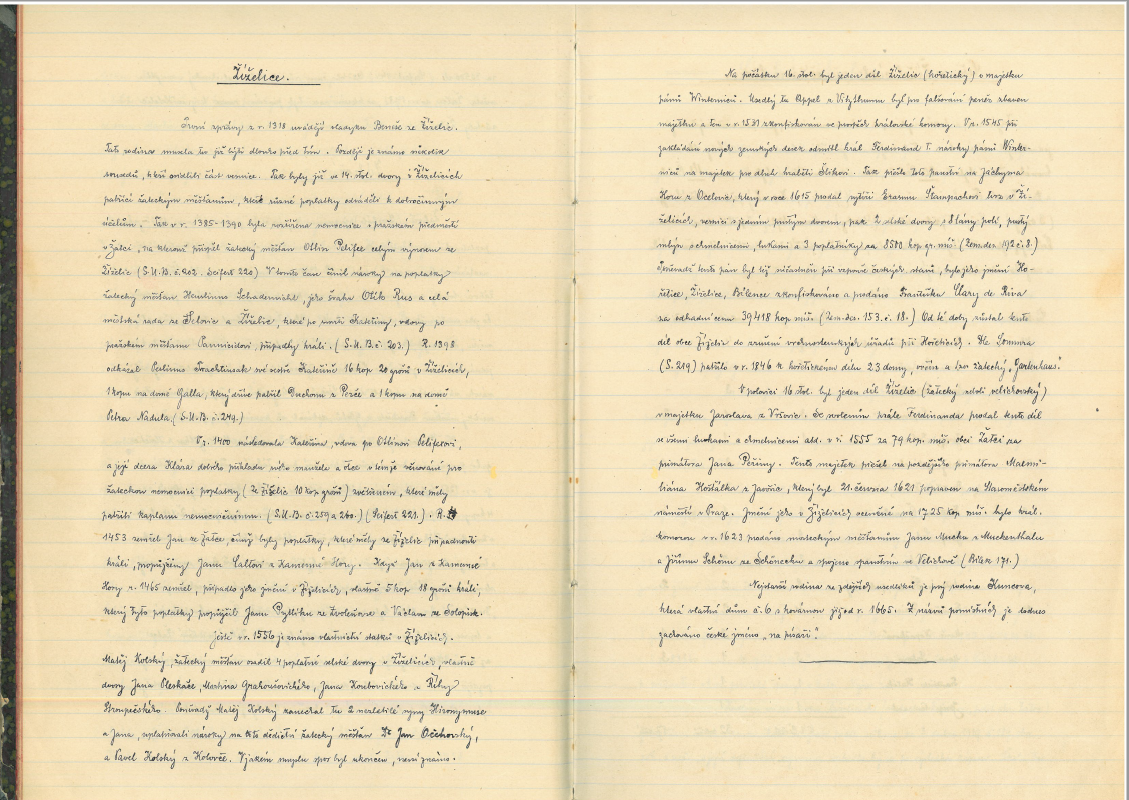 Žíželice.
První zprávy z r. 1318 uvádějí vladyku Beneše ze Žíželic.
Tato rodina musela tu již býti dlouho před tím. Později je známo několik
sousedů, kteří osídlili část vesnice. Tak byly již ve 14. stol. dvory v Žíželicích
patřící žateckým měšťanům, které různé poplatky odváděly k dobročinným
účelům. Tak v r. 1385-1390 byla rozšířena nemocnice v pražském předměstí
v Žatci, na kterou přispěl žatecký měšťan Otlin Pelifex celým výnosem ze
Žíželic (S.U.B. č. 202. Seifert 220) V tomto čase činil nároky na poplatky
žatecký měšťan Henslinus Schadenicht, jeho švakr Otík Rus a celá
městská rada ze Selovic a Žíželic, které po smrti Kateřiny, vdovy po
pražském měšťanu Pannicidovi, připadly králi. (S.U.B. č. 203.) R. 1398
odkázal Oeslinus Trachtinsak své sestře Kateřině 16 kop 20 grošů v Žíželicích,
1 kopu na domě Galla, který dříve patřil Duchoni z Pesče a 1 kopu na domě
Petra Nadula. (S.U.B. č. 249.)
V r. 1400 následovala Kateřina, vdova po Otlinovi Pelifexovi,
a její dcera Klára dobrého příkladu svého manžela a otce v témže věnování pro
žateckou nemocnici poplatky (ze Žíželic 10 kop grošů) zvětšením, které měly
patřiti kaplanu nemocničnímu. (S.U.B. č. 259 a 260.) (Seifert 221.). R.
1453 zemřel Jan ze Žatce, čímž byly poplatky, které měly ze Žíželic připadnouti
králi, propůjčeny Janu Caltovi z Kamenné Hory. Když Jan z Kamenné
Hory r. 1465 zemřel, připadlo jeho jmění v Žíželicích, vlastně 5 kop 18 grošů králi,
který tyto poplatky propůjčil Janu Pytlíku ze Zvoleňovse a Václavu ze Solopisk.
Ještě v r. 1556 je známo vlastnictví statků v Žíželicích.
Matěj Kolský, žatecký měšťan osadil 4 poplatné selské dvory v Žíželicích, vlastně
dvory Jana Pleskače, Martina Grahoušovického, Jana Koubovického a Říhy
Stroupečského. Poněvadž Matěj Kolský zanechal tu 2 nezletilé syny Hieronymuse
a Jana, uplatňovali nároky na toto dědictví žatecký měšťan Dr Jan Očehovský,
a Pavel Kolský z Kolovče. V jakém smyslu spor byl ukončen, není známo.
Na počátku 16. stol. byl jeden díl Žíželic (hořetický) v majetku
pánů Winterniců. Usedlý tu Appel z Vitzthumu byl pro falšování peněz zbaven
majetku a ten v r. 1531 zkonfiskován ve prospěch královské komory. V r. 1545 při
zakládání nových zemských desek odmítl král Ferdinand I. nároky pánů Winter-
niců na majetek pro dluh hraběti Šlikovi. Tak přišlo toto panství na Jáchyma
Horu z Ocelovic, který v roce 1615 prodal rytíři Erasmu Štampachovi tvrz v Ží-
želicích, vesnici s jedním pustým dvorem, pak 2 selské dvory s 8 lány polí, pustý
mlýn s chmelnicemi, lukami a 3 poplatníky za 8500 kop gr. míš. (Zem. des. 192 č. 8.)
Poněvadž tento pán byl též účastněn při vzpouře českých stavů, bylo jeho jmění Ho-
řetice, Žíželice, Bítozeves zkonfiskováno a prodáno Františku Clary de Riva
za odhadní cenu 39418 kop míš. (Zem. des. 153. č. 18.) Od té doby zůstal tento
díl obce Žíželic do zrušení vrchnostenských úřadů při Hořeticích. Dle Sommra
(S. 219) patřilo v r. 1846 k hořetickému dílu 23 domy, ovčín a tzv zatecký „Gartenhaus".
V polovici 16 stol. byl jeden díl Žíželic (žatecký neboli velichovský)
v majetku Jaroslava z Vřesovic. Se svolením krále Ferdinanda prodal tento díl
se všemi lukami a chmelnicemi add. v r. 1555 za 79 kop. míš. obci Žatci za
primátora Jana Peřiny. Tento majetek přešel na pozdějšího primátora Maxmi-
liána Hošťálka z Javořic, který byl 21. června 1621 popraven na Staroměstském
náměstí v Praze. Jmění jeho v Žíželicích oceněné na 1725 kop míš. bylo král.
komorou v r. 1623 prodáno mosteckým měšťanům Janu Mucku z Muckenthalu
a Jiřímu Schönu ze Schönecku a spojeno s panstvím ve Velichově (Bílek 171.)
Nejstarší rodina ze zdejších usedlíků je prý rodina Kuncova,
která vlastní dům č. 6 s kovárnou již od r. 1665. Z názvů pomístních je dodnes
zachováno české jméno „na písáři".